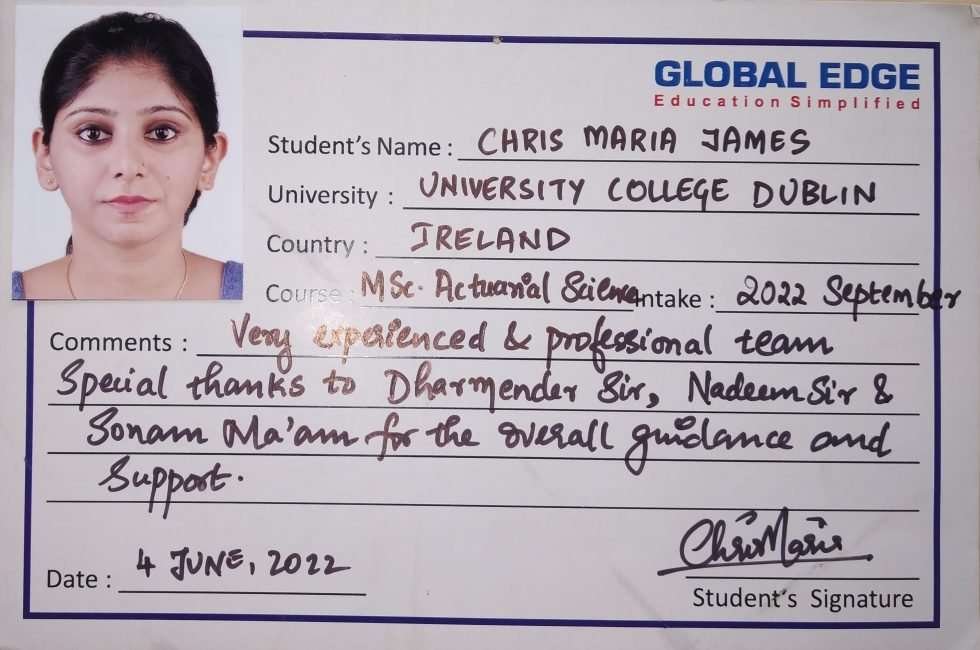 GLOBAL EDGE
Education Simplified
Student's Name : CHRIS MARIA JAMES
University : UNIVERSITY COLLEGE DUBLIN
Country : IRELAND
Course : MSc. Actuarial Science Intake : 2022 September
Comments : Very experienced & professional team
Special thanks to Dharmender Sir, Nadeem Sir &
Sonam Ma'am for the overall guidance and
Support.
Chris Maria
Date : 4 JUNE, 2022
Student's Signature